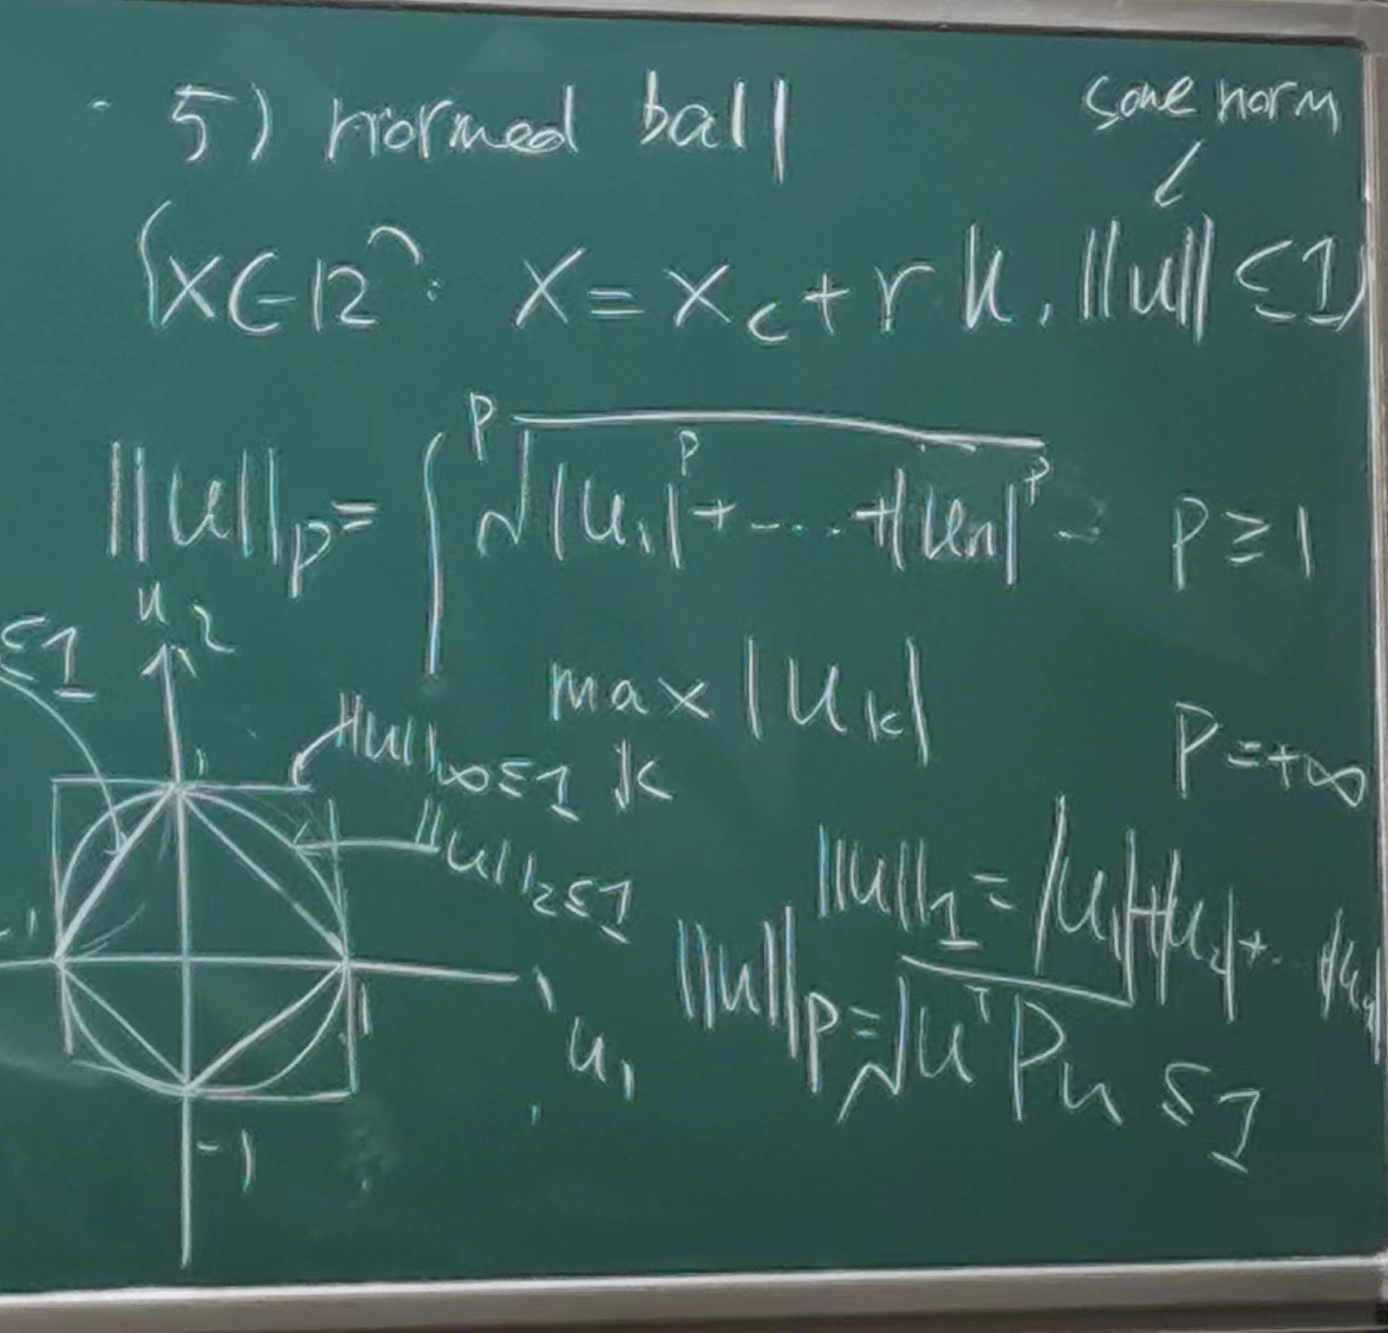 5) normed ball
some norm
{x∈ℝⁿ: x = x_c + r u, ||u|| ≤ 1}
||u||_p = { ᵖ√(|u₁|ᵖ + ... + |uₙ|ᵖ) - p ≥ 1
max_k |u_k| p = +∞
u₂
≤1
1
||u||_∞ ≤ 1
||u||₂ ≤ 1
-1
1
u₁
-1
||u||₁ = |u₁| + |u₂| + ... |uₙ|
||u||_P = √(uᵀPu) ≤ 1